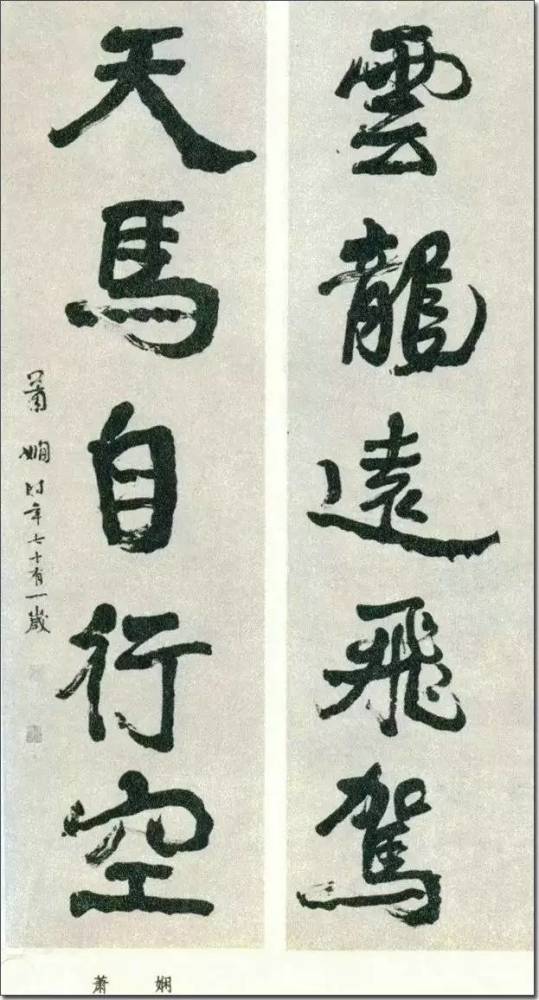 雲龍遠飛駕
天馬自行空
蕭嫻時年七十有一歲
萧 娴